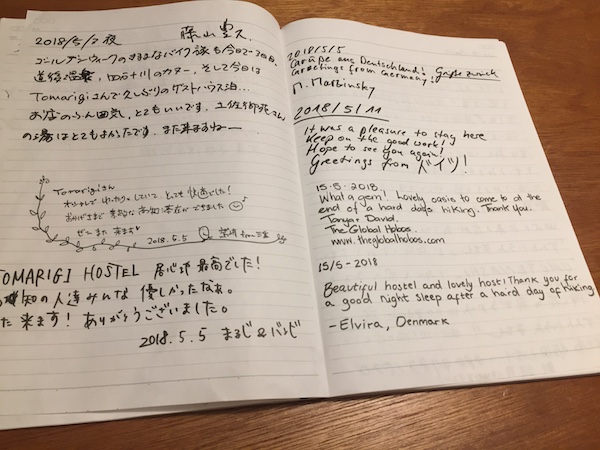 2018/5/2 夜 藤山 豊久
ゴールデンウィークのきままなバイク旅も今日で3日目、
道後温泉、四万十川のカヌー、そして今日は
Tomarigiさんで久しぶりのゲストハウス泊…
お店のふん囲気、とてもいいです。土佐
の湯はとてもよかったです。また来ますねー
Tomarigiさん
オシャレで ゆったりしていて、とても 快適でした!
おかげさまで 素敵な 高知滞在ができました
ぜひ また 来ます♪
2018.5.5 from 三重
TOMARIGI HOSTEL 居心地 最高でした!
高知の人達みんな 優しかったなぁ。
た 来ます! ありがとうございました。
2018.5.5 まるじ&バンビ
2018/5/5
Grüße aus Deutschland!
Greetings from Germany! Grüße zurück
M. Marbinsky
2018/5/11
It was a pleasure to stay here
Keep on the good work!
Hope to see you again!
Greetings from ドイツ!
15.5.2018.
What a gem! Lovely oasis to come to at the
end of a hard days hiking. Thank You.
Tanya & David.
The Global Hobos.
www.theglobalhobos.com
15/5-2018
Beautiful hostel and lovely host! Thank you for
a good night sleep after a hard day of hiking
-Elvira, Denmark